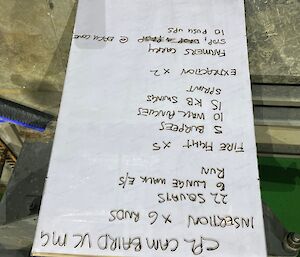 CPL CAM BAIRD VC MG
INSERTION X 6 RNDS
22 SQUATS
6 LUNGE WALK E/S
RUN
FIRE FIGHT X5
5 BURPEES
10 WALL PUNCHES
15 KB SWINGS
SPRINT
EXTRACTION X 2
FARMERS CARRY
STOP, DROP @ EACH CONE
10 PUSH UPS